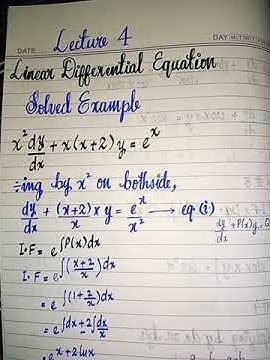 Lecture 4
DATE
DAY
Linear Differential Equation
Solved Example
x² dy/dx + x(x+2)y = e^x
÷ing by x² on bothside,
dy/dx + (x+2)/x × y = e^x/x² → eq (i)
dy/dx + P(x)y =
I.F = e^∫P(x)dx
I.F = e^∫((x+2)/x)dx
= e^∫(1+2/x)dx
= e^∫dx+2∫dx/x
= e^x+2lnx